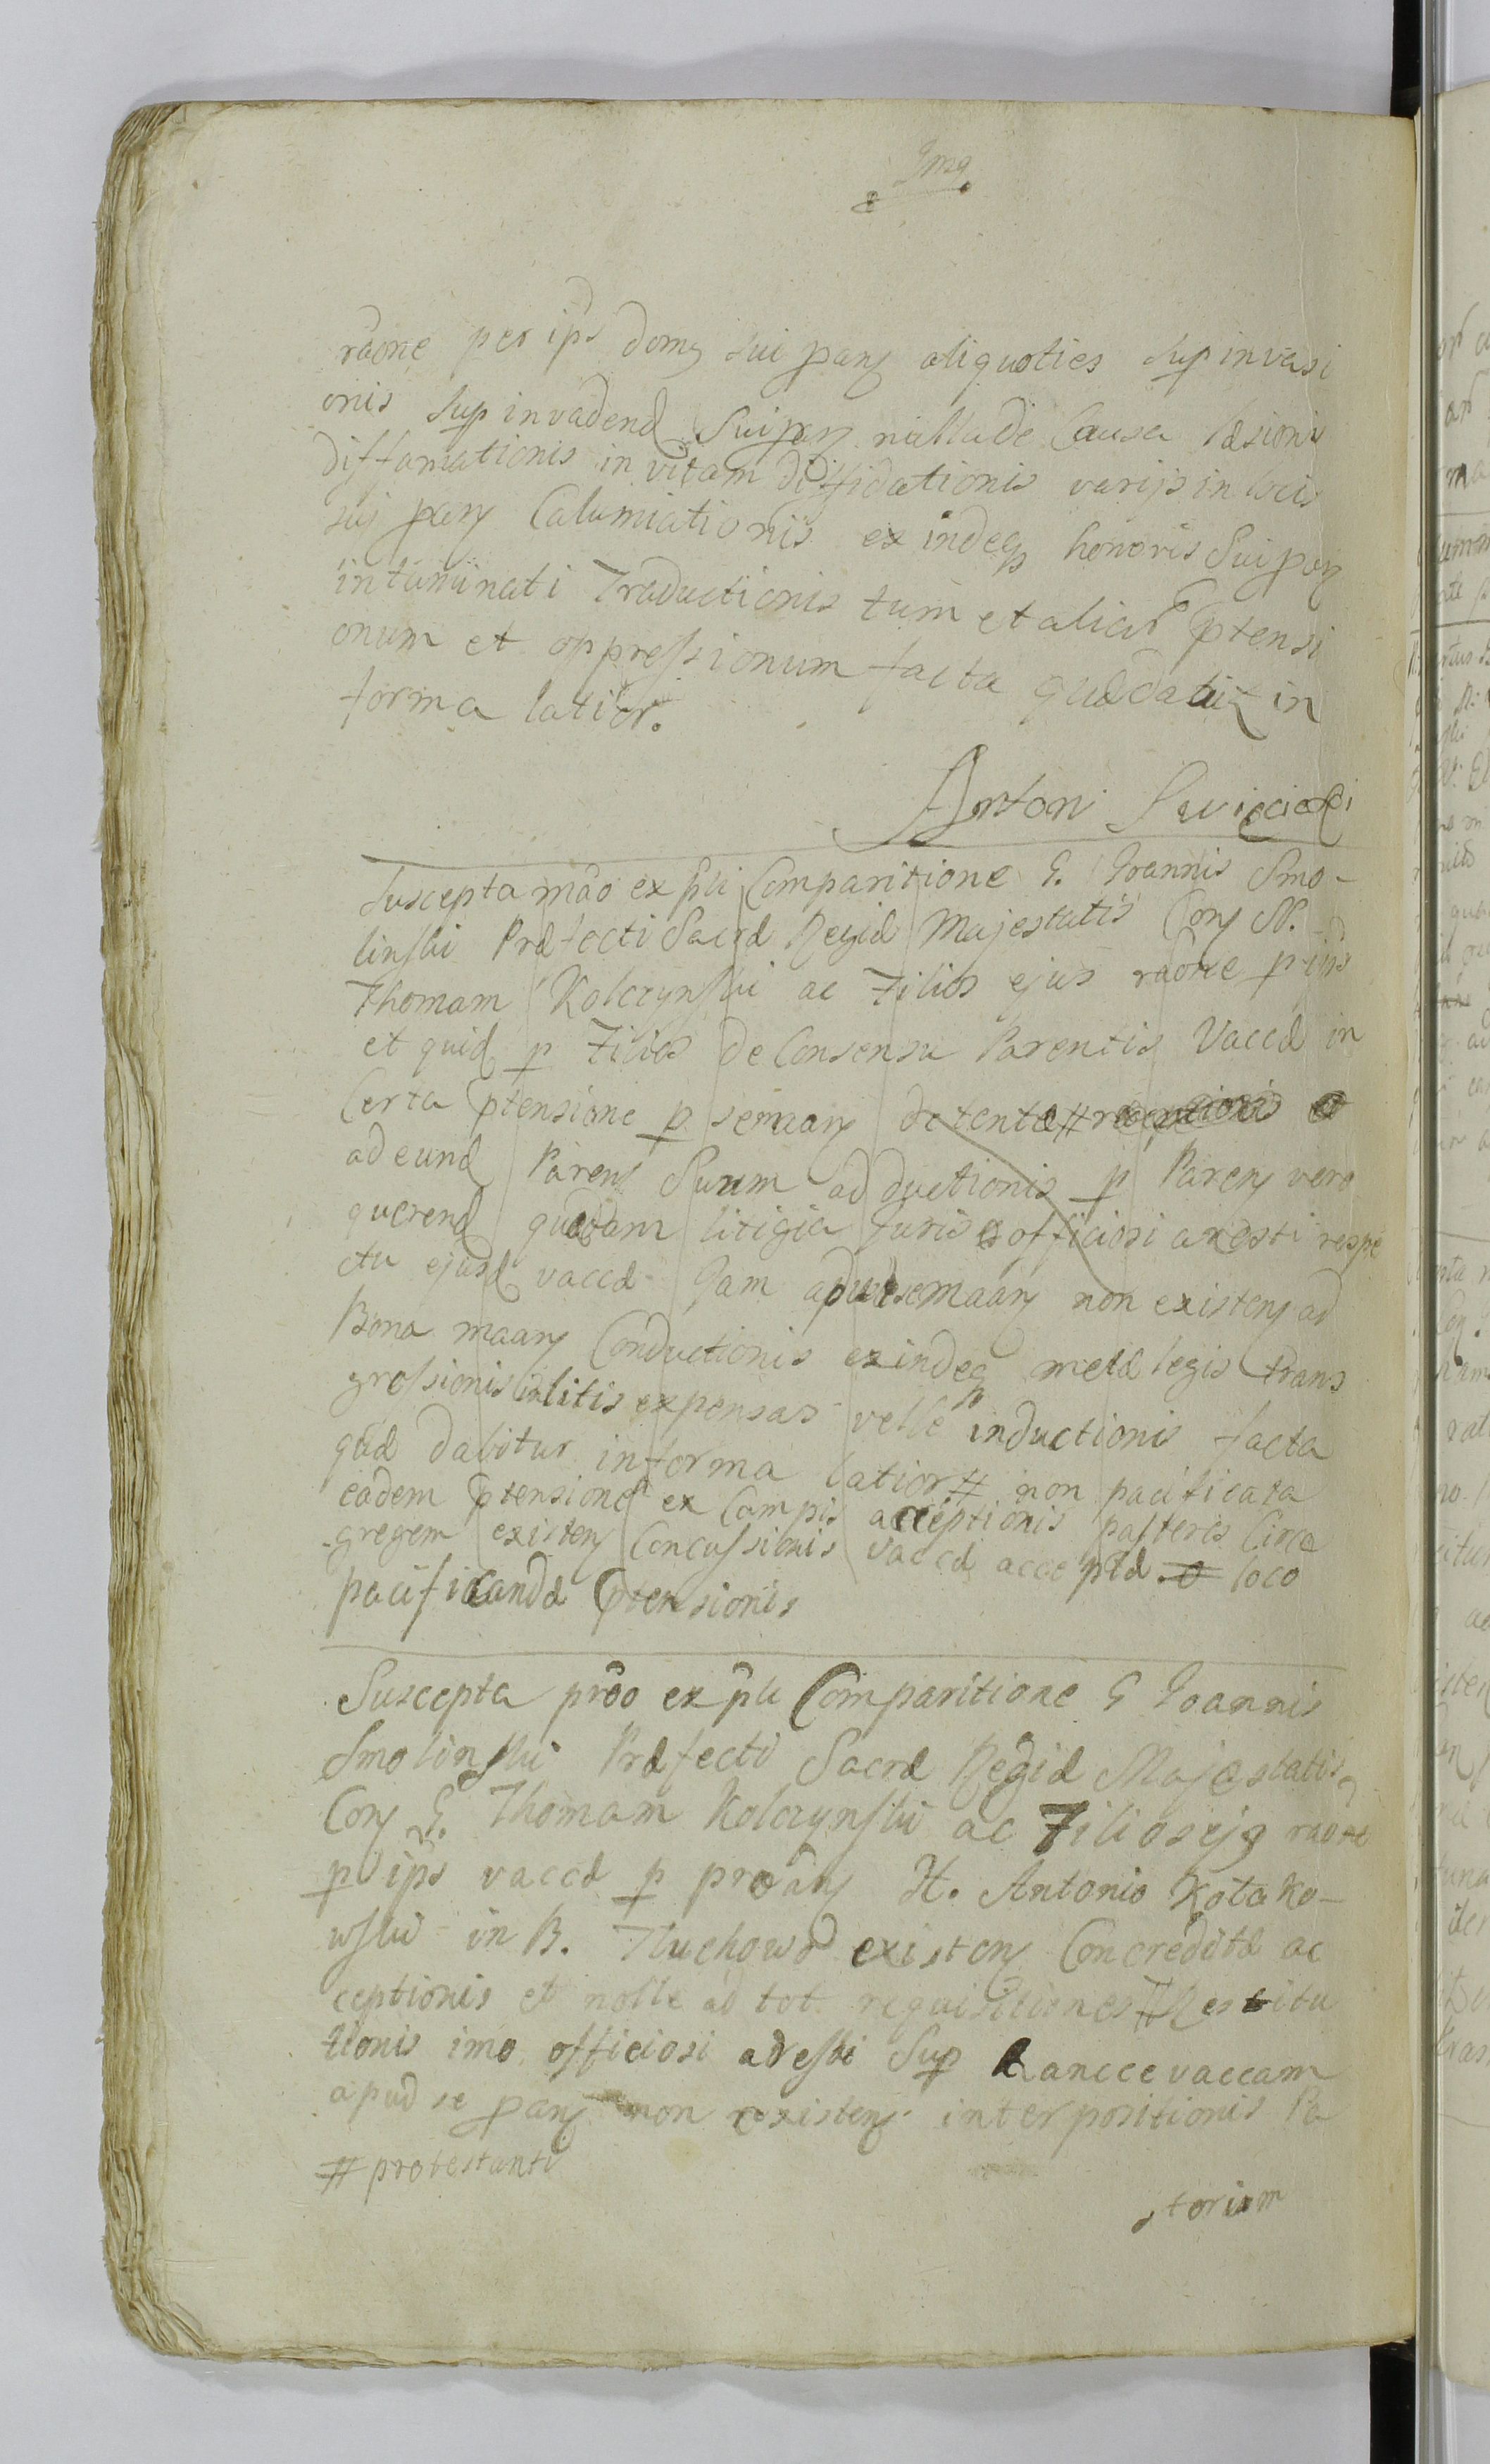 raõne per ips domy sui pany aliquoties sup invasi
onis sup invadend sui pany nulla de Causa læsionis
diffamationis in vitam diffidationis varijs in locis
sui pany Calumiationis exindeq honoris Sui pany
intaminati Traductionis tum et aliar ptensi
onum et oppressionum facta quæ dabitur in
forma latior.
Antoni Swięcicki
Suscepta mão ex pñti Comparitione G. Joannis Smo-
linski Præfecti Sacræ Regiæ Majestatis Cony N.
Thomam Kolczynski ac Filios ejus raõne p ips
et quid p Filios de Consensu Parentis Vaccæ in
Certa ptensione p se maany detentæ #
ad eund Pareny Suum adductionis p Pareny vero
querend quædam litigia Juris officiosi aresti respe
ctu ejusd vaccæ Jam apud se maany non existeny ad
Bona maany Conductionis exindeq legis trans
gressionis litis expensas velle inductionis facta
quæ dabitur in forma latior # non pacificata
eadem ptensione ex Campis acceptionis pasteris Circa
gregem existeny Concussionis vaccæ acceptæ loco
pacificandæ ptensionis
Suscepta prõo ex pñti Comparitione G Joannis
Smolinski Præfecti Sacræ Regiæ Majestatis
Cony G. Thomam Kolczynski ac Filios ejg raõne
p ips vaccæ p proany H. Antonio Kotako-
wski in B. Tluchowo existeny Concreditæ ac
ceptionis et nolle ad tot requisitiones # Restitu
tionis imo officiosi adesti Sup hancce vaccam
apud se pany non existeny interpositionis Pa
# protestanti
storium